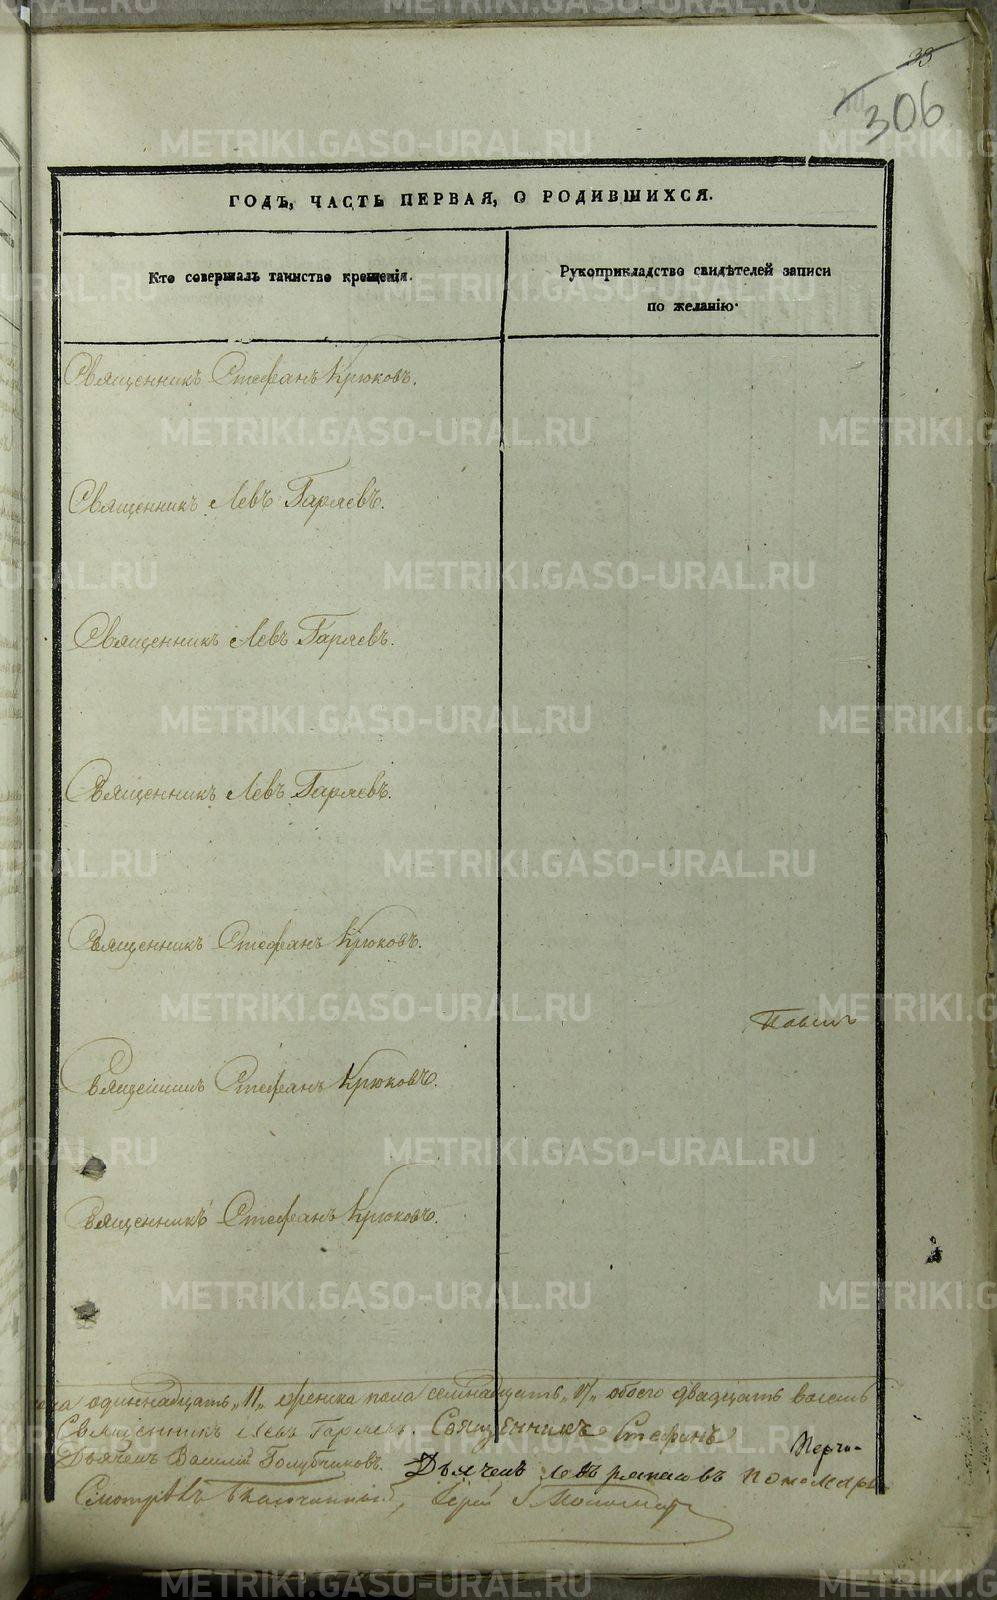 33
306
ГОДЪ, ЧАСТЬ ПЕРВАЯ, О РОДИВШИХСЯ.
Кто совершалъ таинство крещенія.
Рукоприкладство свидѣтелей записи
по желанію.
Священникъ Стефанъ Крюковъ.
Священникъ Левъ Гаряевъ.
Священникъ Левъ Гаряевъ.
Священникъ Левъ Гаряевъ.
Священникъ Стефанъ Крюковъ.
Священникъ Стефанъ Крюковъ.
Священникъ Стефанъ Крюковъ.
одиннадцать „11„ женска пола семнадцать „17„ обоего двадцать восемь
Священникъ Левъ Гаряевъ. Священникъ Стефанъ
Дьячекъ Василій Голубчиковъ. Дьячекъ Пономарь
Смотрѣлъ Благочинный, Іерей
METRIKI.GASO-URAL.RU